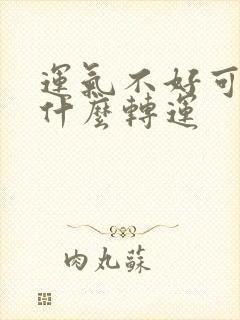 運氣不好可
什麼轉運
肉丸蘇